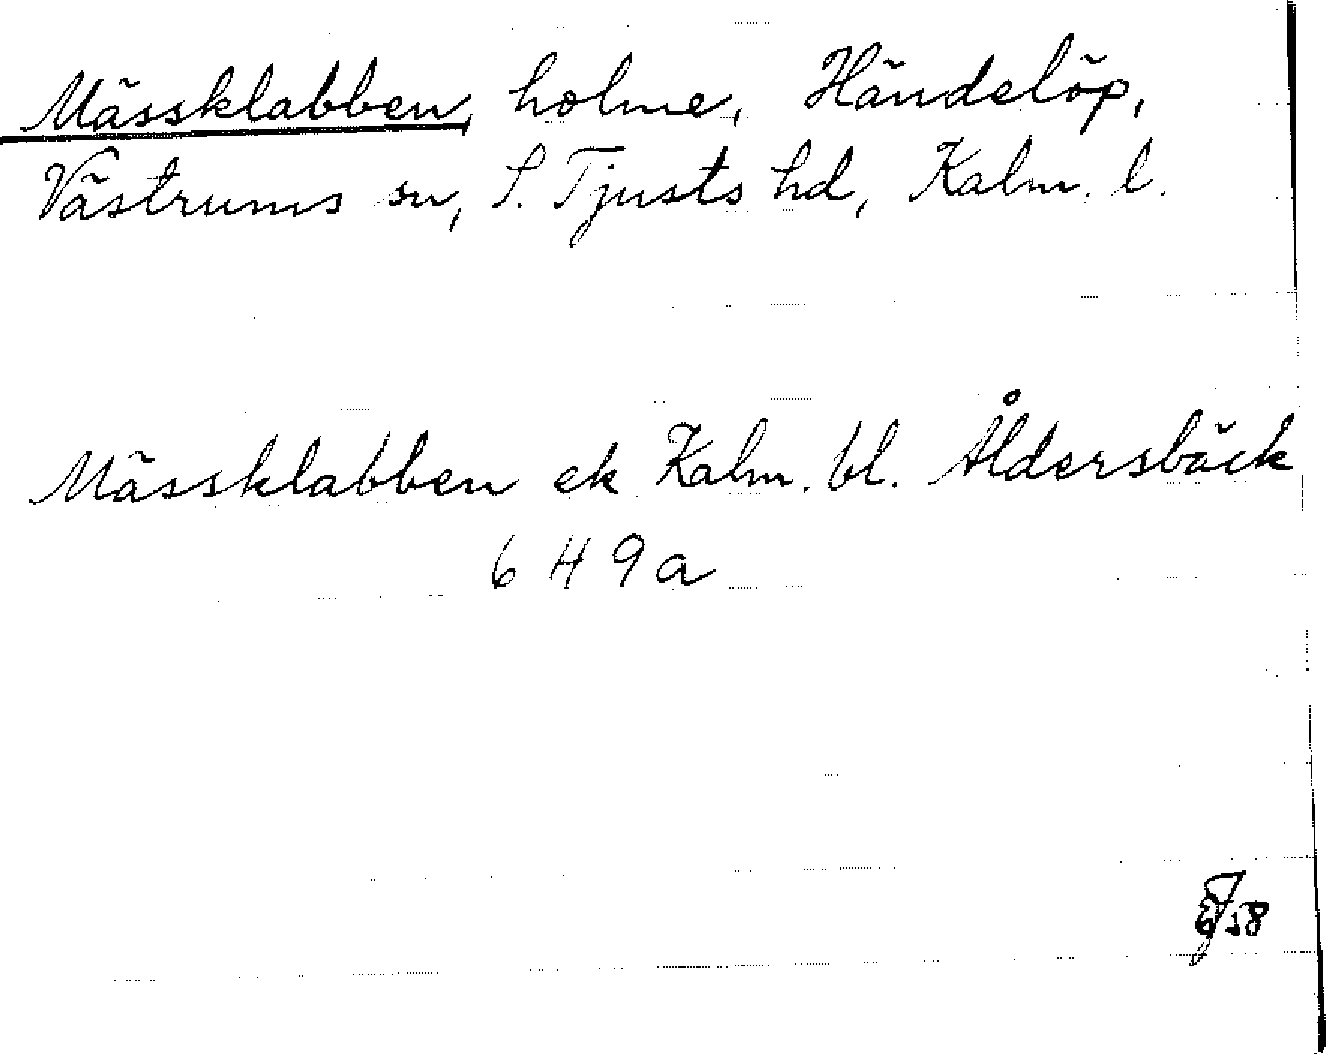 Mässklabben, holme, Händelöp,
Västrums sn, S. Tjusts hd, Kalm. l.
Mässklabben ek Kalm. bl. Åldersbäck
6 4 9 a